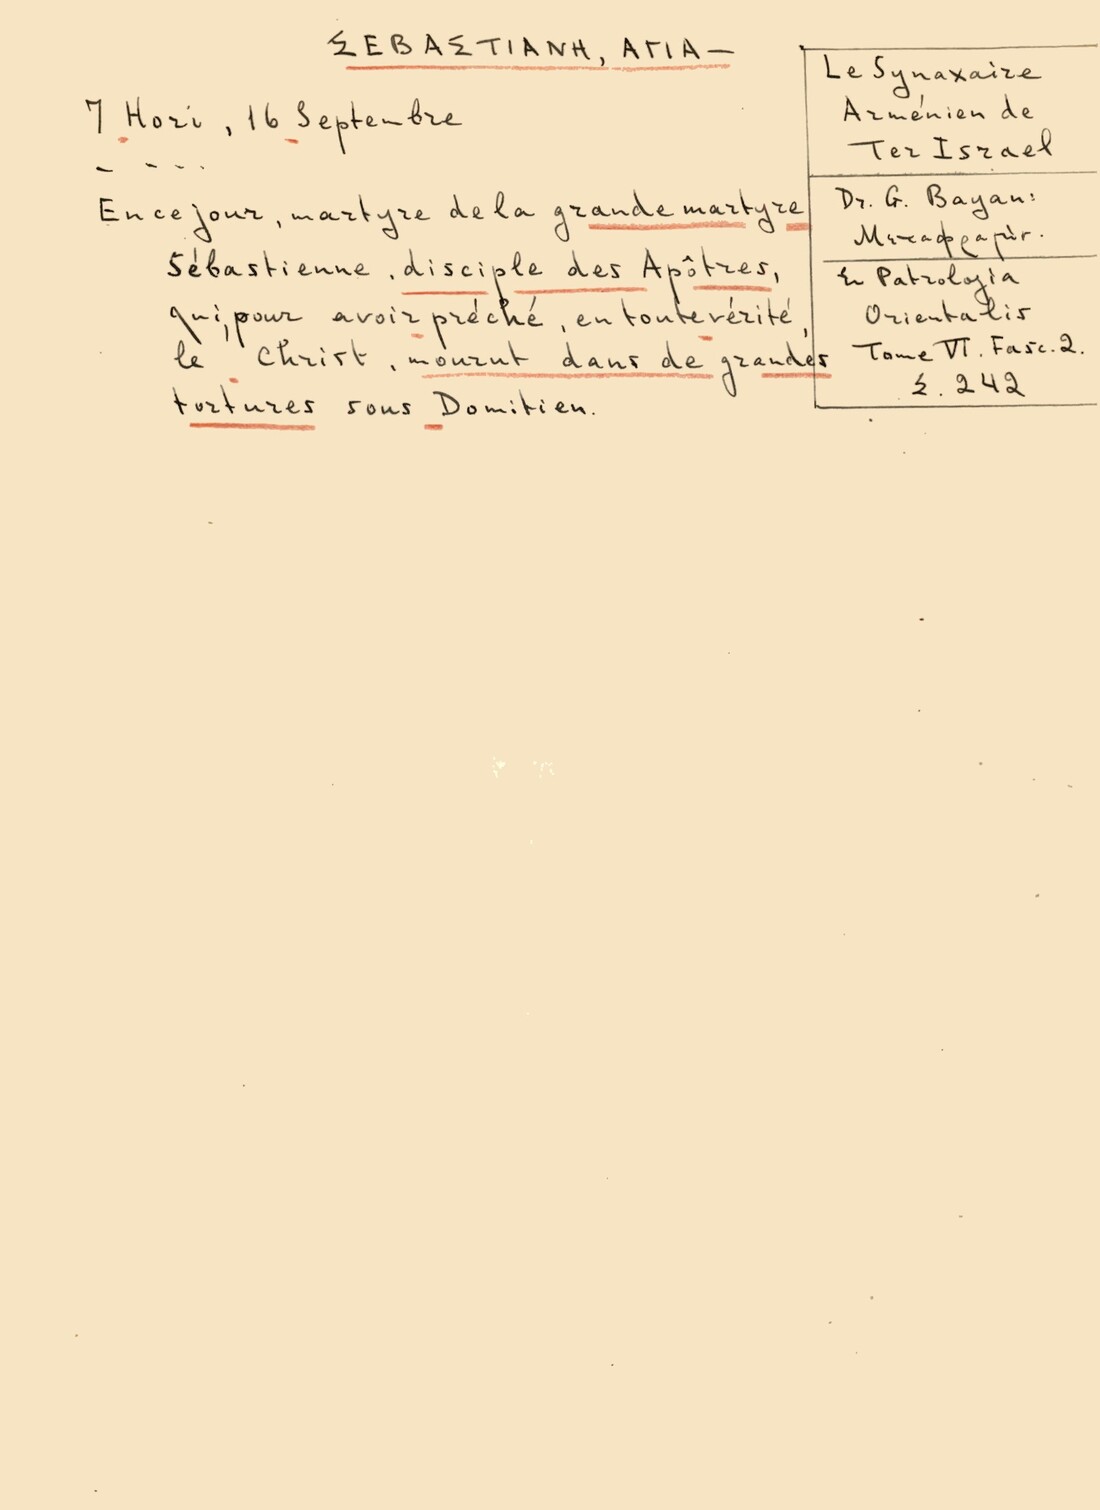 ΣΕΒΑΣΤΙΑΝΗ, ΑΓΙΑ —
7 Hori, 16 Septembre
- - - - .
En ce jour, martyre de la grande martyre
Sébastienne, disciple des Apôtres,
qui, pour avoir préché, en toute vérité,
le Christ, mourut dans de grandes
tortures sous Domitien.
Le Synaxaire
Arménien de
Ter Israel
Dr. G. Bayan:
Μεταφρασμ.
En Patrologia
Orientalis
Tome VI. Fasc. 2.
Σ. 242